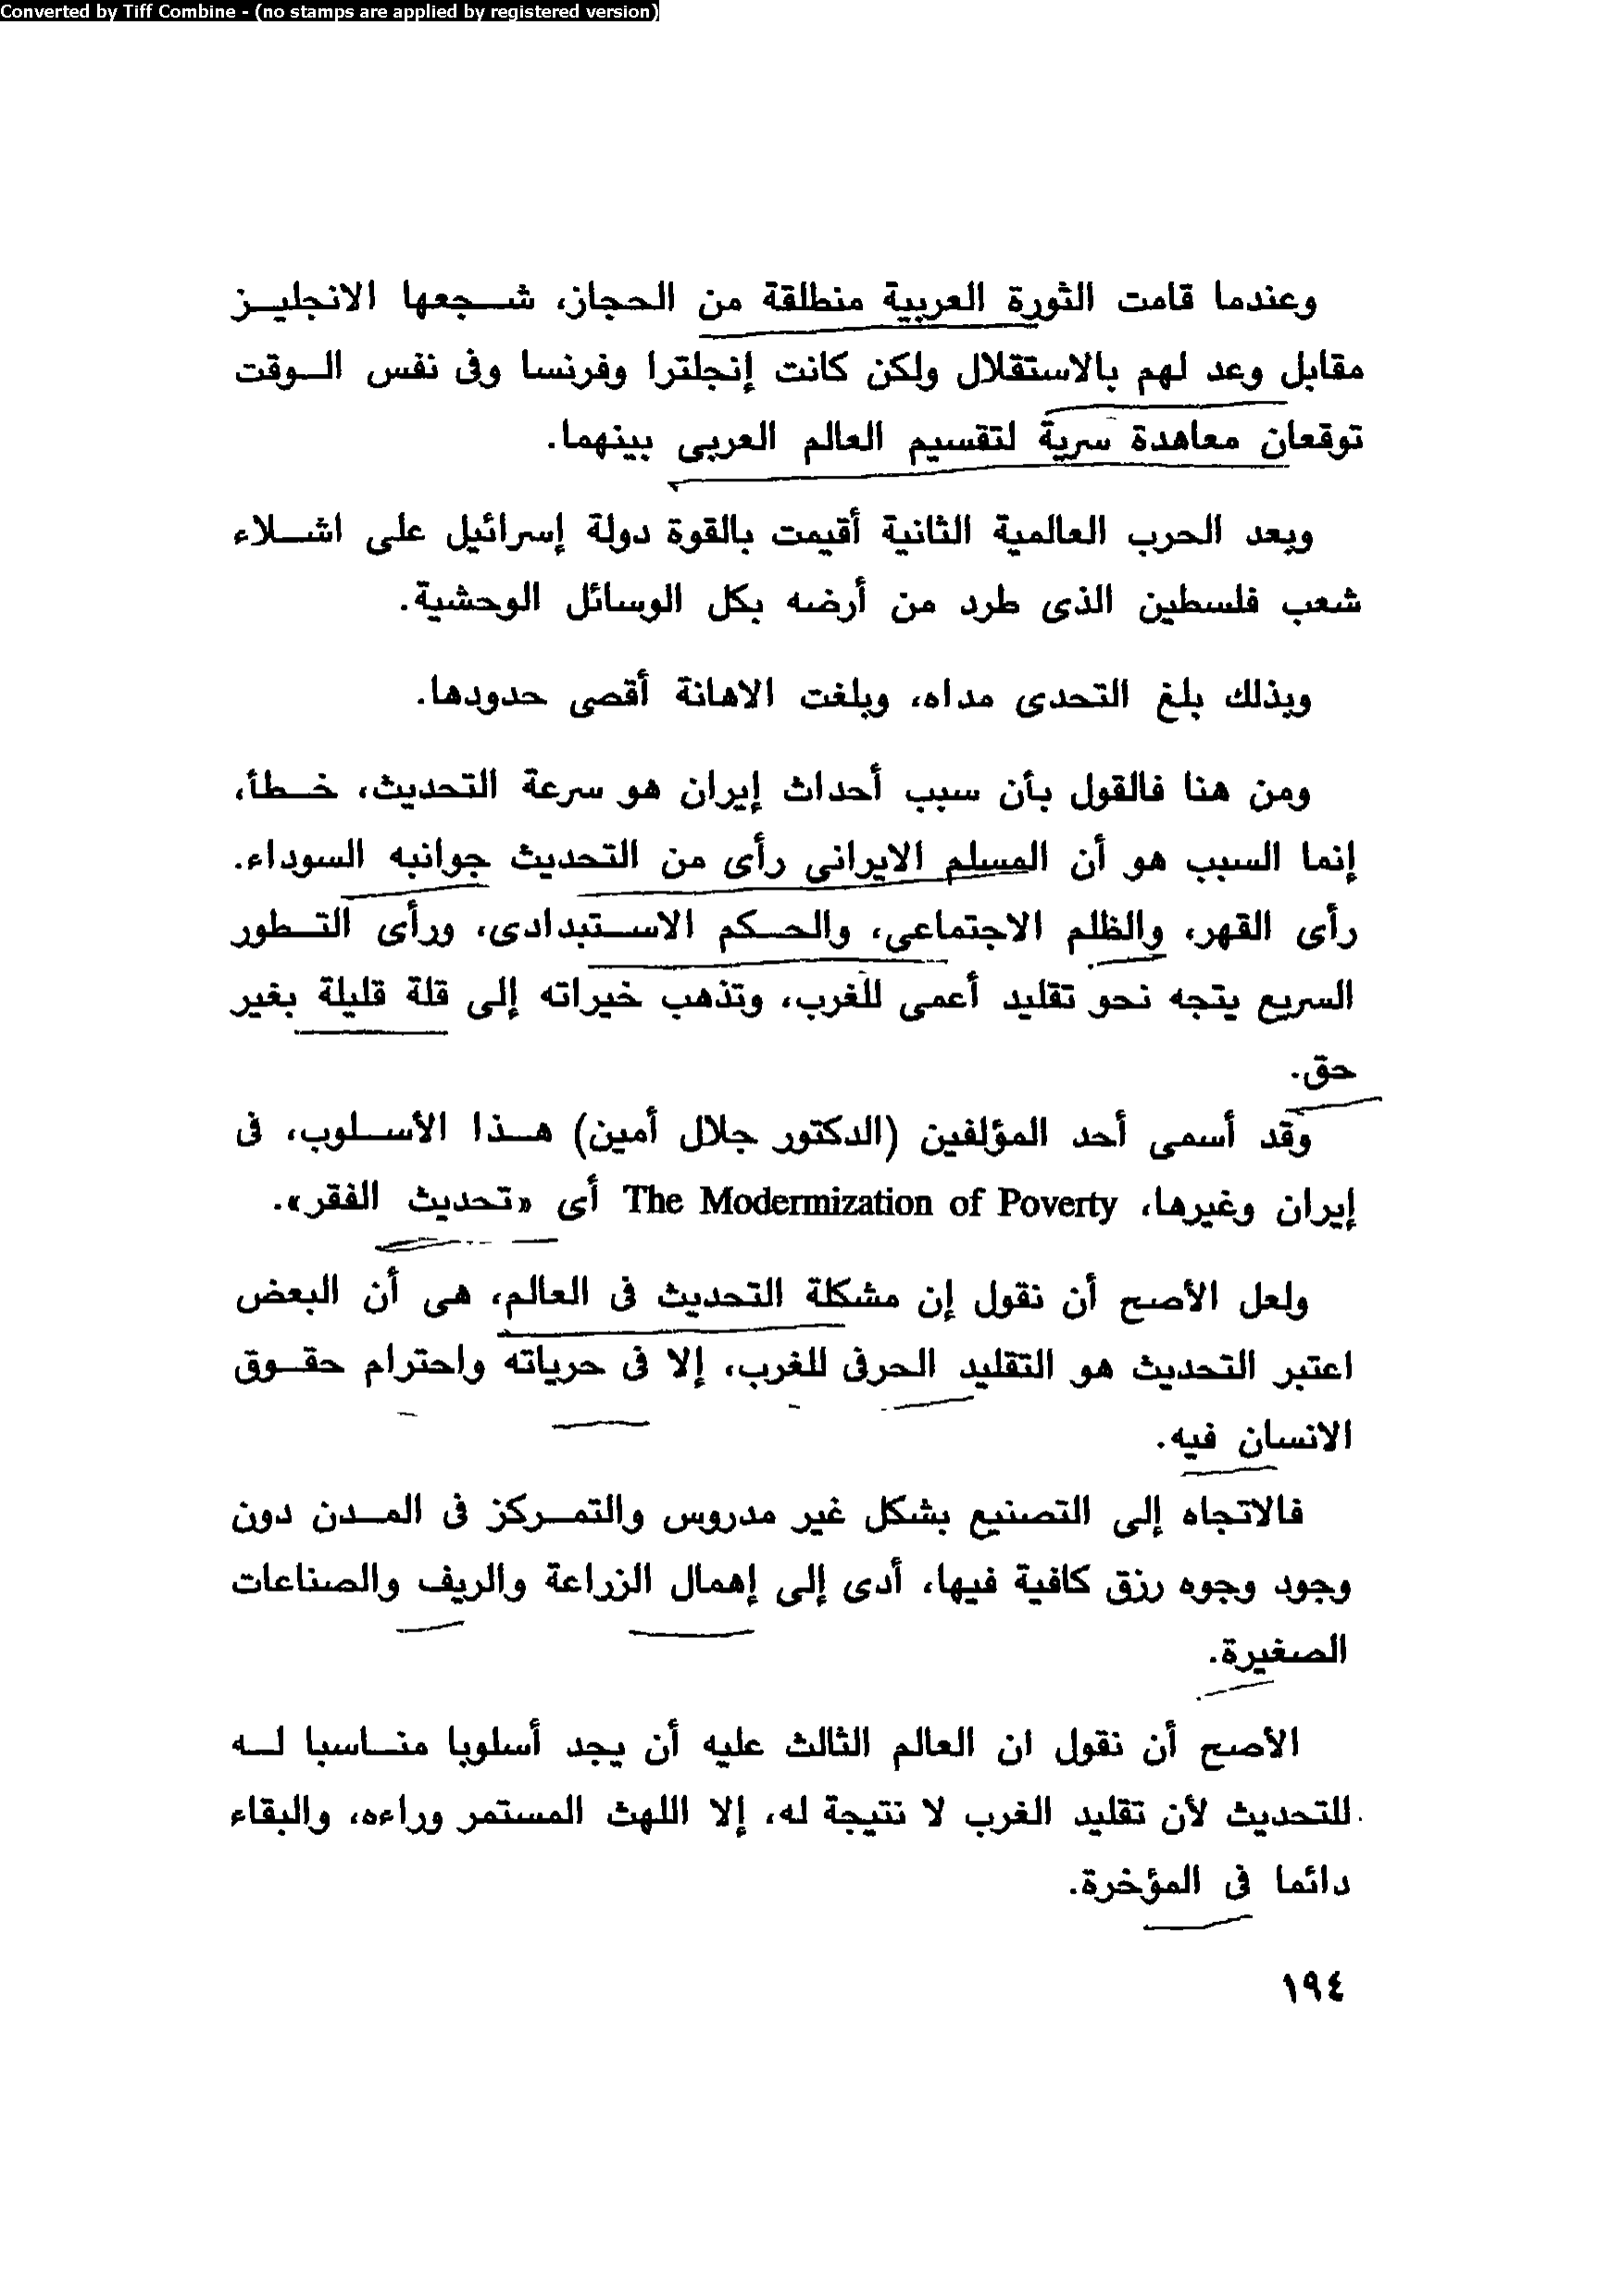 Converted by Tiff Combine - (no stamps are applied by registered version)
وعندما قامت الثورة العربية منطلقة من الحجاز، شجعها الانجليز
مقابل وعد لهم بالاستقلال ولكن كانت إنجلترا وفرنسا وفى نفس الوقت
توقعان معاهدة سرية لتقسيم العالم العربى بينهما.
وبعد الحرب العالمية الثانية أقيمت بالقوة دولة إسرائيل على اشلاء
شعب فلسطين الذى طرد من أرضه بكل الوسائل الوحشية.
وبذلك بلغ التحدى مداه، وبلغت الاهانة أقصى حدودها.
ومن هنا فالقول بأن سبب أحداث إيران هو سرعة التحديث، خطأ،
إنما السبب هو أن المسلم الايرانى رأى من التحديث جوانبه السوداء.
رأى القهر، والظلم الاجتماعى، والحكم الاستبدادى، ورأى التطور
السريع يتجه نحو تقليد أعمى للغرب، وتذهب خيراته إلى قلة قليلة بغير
حق.
وقد أسمى أحد المؤلفين (الدكتور جلال أمين) هذا الأسلوب، فى
إيران وغيرها، The Modermization of Poverty أى «تحديث الفقر».
ولعل الأصح أن نقول إن مشكلة التحديث فى العالم، هى أن البعض
اعتبر التحديث هو التقليد الحرفى للغرب، إلا فى حرياته واحترام حقوق
الانسان فيه.
فالاتجاه إلى التصنيع بشكل غير مدروس والتمركز فى المدن دون
وجود وجوه رزق كافية فيها، أدى إلى إهمال الزراعة والريف والصناعات
الصغيرة.
الأصح أن نقول ان العالم الثالث عليه أن يجد أسلوبا مناسبا له
للتحديث لأن تقليد الغرب لا نتيجة له، إلا اللهث المستمر وراءه، والبقاء
دائما فى المؤخرة.
١٩٤